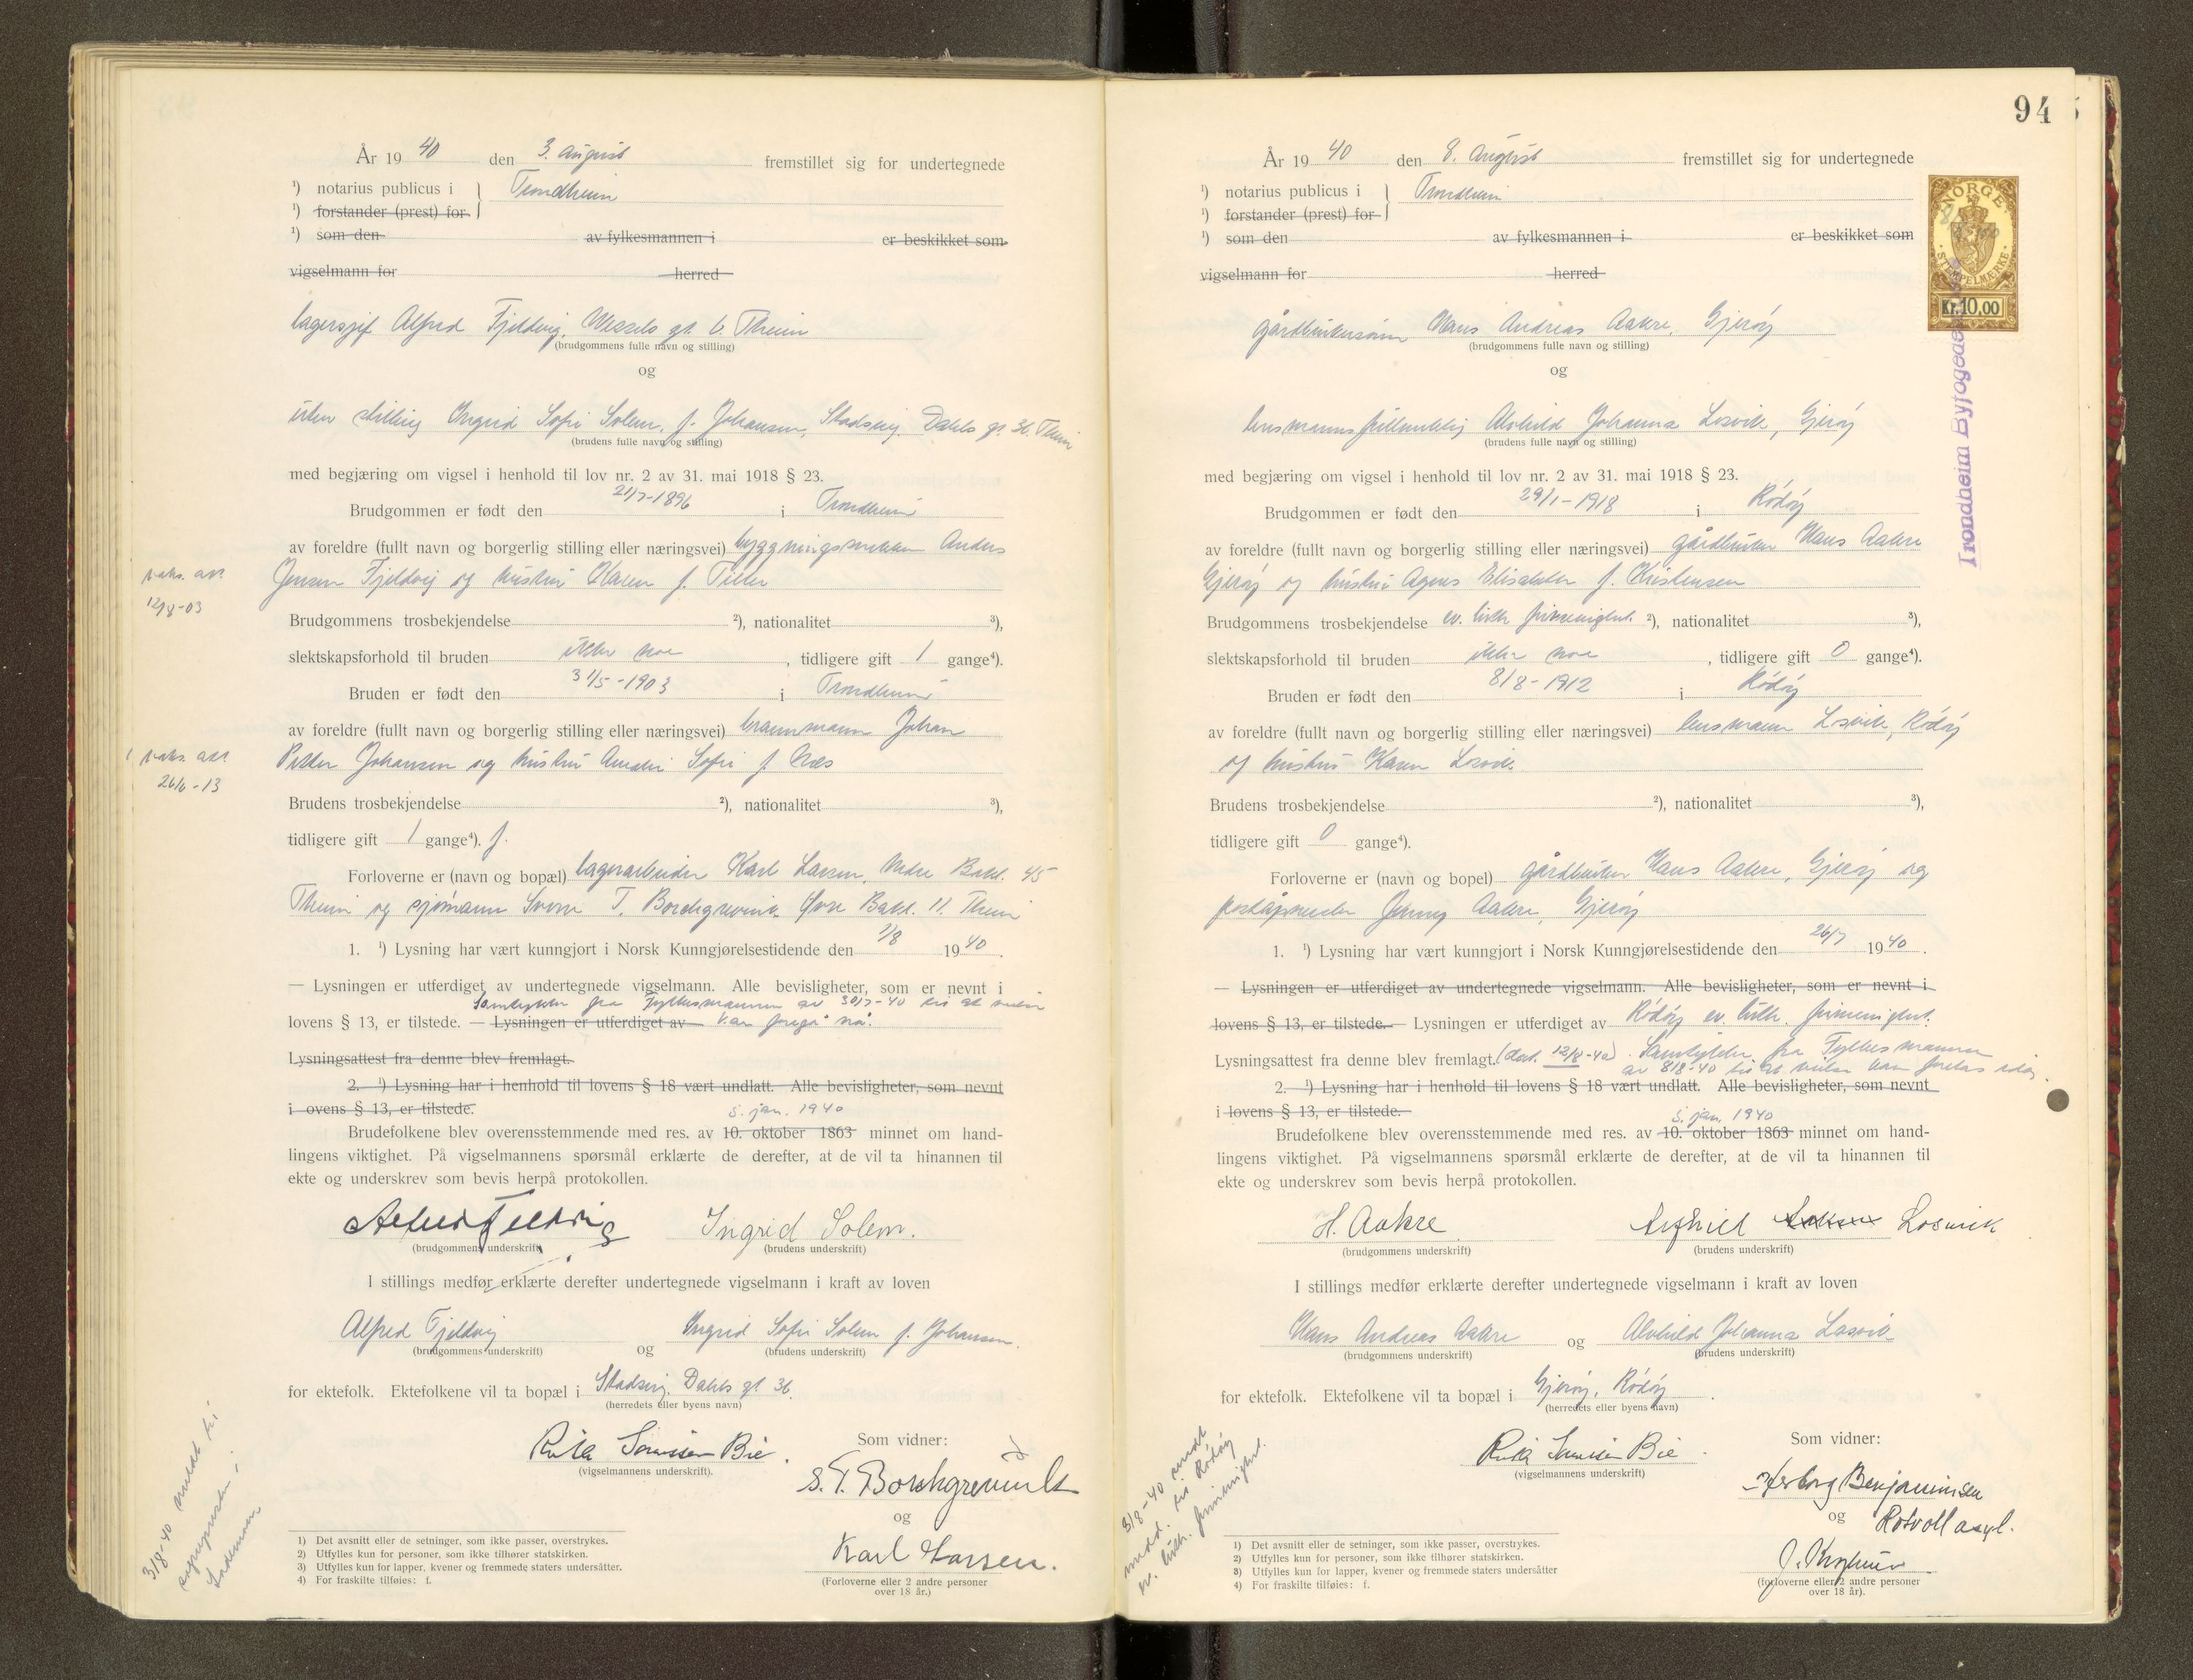 År 1940 den 3. august fremstillet sig for undertegnede
¹) notarius publicus i } Trondheim
¹) forstander (prest) for
¹) som den av fylkesmannen i er beskikket som
vigselmann for herred
lagersjef Alfred Fjeldvig, Wessels gt. 6. Theim
(brudgommens fulle navn og stilling)
og
uten stilling Ingrid Sofie Solem, f. Johansen, Stadsing. Dahls gt. 36. Theim
(brudens fulle navn og stilling)
med begjæring om vigsel i henhold til lov nr. 2 av 31. mai 1918 § 23.
Brudgommen er født den 21/7-1896 i Trondheim
av foreldre (fullt navn og borgerlig stilling eller næringsvei) byggningssnekker Anders
Jensen Fjeldvig og hustru Karen f. Tiller
vaks. att.
12/8-03
Brudgommens trosbekjendelse ²), nationalitet ³),
slektskapsforhold til bruden ikke noe, tidligere gift 1 gange⁴).
Bruden er født den 31/5-1903 i Trondheim
av foreldre (fullt navn og borgerlig stilling eller næringsvei) brannmann Johan
Petter Johansen og hustru Amalie Sofie f. Næs
vaks. att.
26/6-13
Brudens trosbekjendelse ²), nationalitet ³),
tidligere gift 1 gange⁴). f.
Forloverne er (navn og bopæl) lagerarbeider Karl Larsen, Nedre Bakl. 45
Theim og sjømann Sverre T. Borchgrevink Øvre Bakl. 11. Theim
1. ¹) Lysning har vært kunngjort i Norsk Kunngjørelsestidende den 1/8 1940.
— Lysningen er utferdiget av undertegnede vigselmann. Alle bevisligheter, som er nevnt i
Samtykke fra Fylkesmannen av 30/7-40 til at vielse
lovens § 13, er tilstede. — Lysningen er utferdiget av kan foregå nå.
Lysningsattest fra denne blev fremlagt.
2. ¹) Lysning har i henhold til lovens § 18 vært undlatt. Alle bevisligheter, som nevnt
i ovens § 13, er tilstede.
5. jan. 1940
Brudefolkene blev overensstemmende med res. av 10. oktober 1863 minnet om hand-
lingens viktighet. På vigselmannens spørsmål erklærte de derefter, at de vil ta hinannen til
ekte og underskrev som bevis herpå protokollen.
Alfred Fjeldvig Ingrid Solem.
(brudgommens underskrift) (brudens underskrift)
I stillings medfør erklærte derefter undertegnede vigselmann i kraft av loven
Alfred Fjeldvig og Ingrid Sofie Solem f. Johansen.
(brudgommens underskrift) (brudens underskrift)
for ektefolk. Ektefolkene vil ta bopæl i Stadsing. Dahls gt 36.
(herredets eller byens navn)
Som vidner:
(vigselmannens underskrift).
S. T. Borchgrevink
og
Karl Larsen.
(Forloverne eller 2 andre personer
over 18 år.)
3/8-40 meldt til
sognepresten i
Lademoen
1) Det avsnitt eller de setninger, som ikke passer, overstrykes.
2) Utfylles kun for personer, som ikke tilhører statskirken.
3) Utfylles kun for lapper, kvener og fremmede staters undersåtter.
4) For fraskilte tilføies: f.
94
År 1940 den 8. August fremstillet sig for undertegnede
¹) notarius publicus i } Trondheim
¹) forstander (prest) for
¹) som den av fylkesmannen i er beskikket som
vigselmann for herred
NORGE
STEMPELMERKE
Kr. 10,00
Trondheim Byfogedembede
gårdbrukersønn Hans Andreas Aakre, Gjerøy
(brudgommens fulle navn og stilling)
og
lensmannsfullmektig Alvhild Johanna Losvik, Gjerøy
(brudens fulle navn og stilling)
med begjæring om vigsel i henhold til lov nr. 2 av 31. mai 1918 § 23.
Brudgommen er født den 29/1-1918 i Rödöy
av foreldre (fullt navn og borgerlig stilling eller næringsvei) gårdbruker Hans Aakre
Gjerøy og hustru Agnes Elisabeth f. Kristensen
Brudgommens trosbekjendelse ev. luth. frimenighet. ²), nationalitet ³),
slektskapsforhold til bruden ikke noe, tidligere gift 0 gange⁴).
Bruden er født den 8/8-1912 i Rödöy
av foreldre (fullt navn og borgerlig stilling eller næringsvei) lensmann Losvik, Rödöy
og hustru Karen Losvik
Brudens trosbekjendelse ²), nationalitet ³),
tidligere gift 0 gange⁴).
Forloverne er (navn og bopel) gårdbruker Hans Aakre, Gjerøy og
poståpner Jenny Aakre, Gjerøy
1. ¹) Lysning har vært kunngjort i Norsk Kunngjørelsestidende den 26/7 1940.
— Lysningen er utferdiget av undertegnede vigselmann. Alle bevisligheter, som er nevnt i
lovens § 13, er tilstede. — Lysningen er utferdiget av Rödöy ev. luth. frimenighet.
Lysningsattest fra denne blev fremlagt. (dat. 12/8-40). Samtykke fra Fylkesmannen
av 8/8-40 til at vielse kan foretas idag.
2. ¹) Lysning har i henhold til lovens § 18 vært undlatt. Alle bevisligheter, som nevnt
i lovens § 13, er tilstede.
5. jan. 1940
Brudefolkene blev overensstemmende med res. av 10. oktober 1863 minnet om hand-
lingens viktighet. På vigselmannens spørsmål erklærte de derefter, at de vil ta hinannen til
ekte og underskrev som bevis herpå protokollen.
H. Aakre Losvik
(brudgommens underskrift) (brudens underskrift)
I stillings medfør erklærte derefter undertegnede vigselmann i kraft av loven
Hans Andreas Aakre og Alvhild Johanna Losvik
(brudgommens underskrift) (brudens underskrift)
for ektefolk. Ektefolkene vil ta bopæl i Gjerøy, Rödöy.
(herredets eller byens navn)
Som vidner:
(vigselmannens underskrift)
Herborg Benjaminsen
og Rotvoll asyl.
(forloverne eller 2 andre personer
over 18 år).
8/8-40 sendt
meld. til Rödöy
ev. luth. frimenighet.
1) Det avsnitt eller de setninger, som ikke passer, overstrykes.
2) Utfylles kun for personer, som ikke tilhører statskirken.
3) Utfylles kun for lapper, kvener og fremmede staters undersåtter
4) For fraskilte tilføies: f.